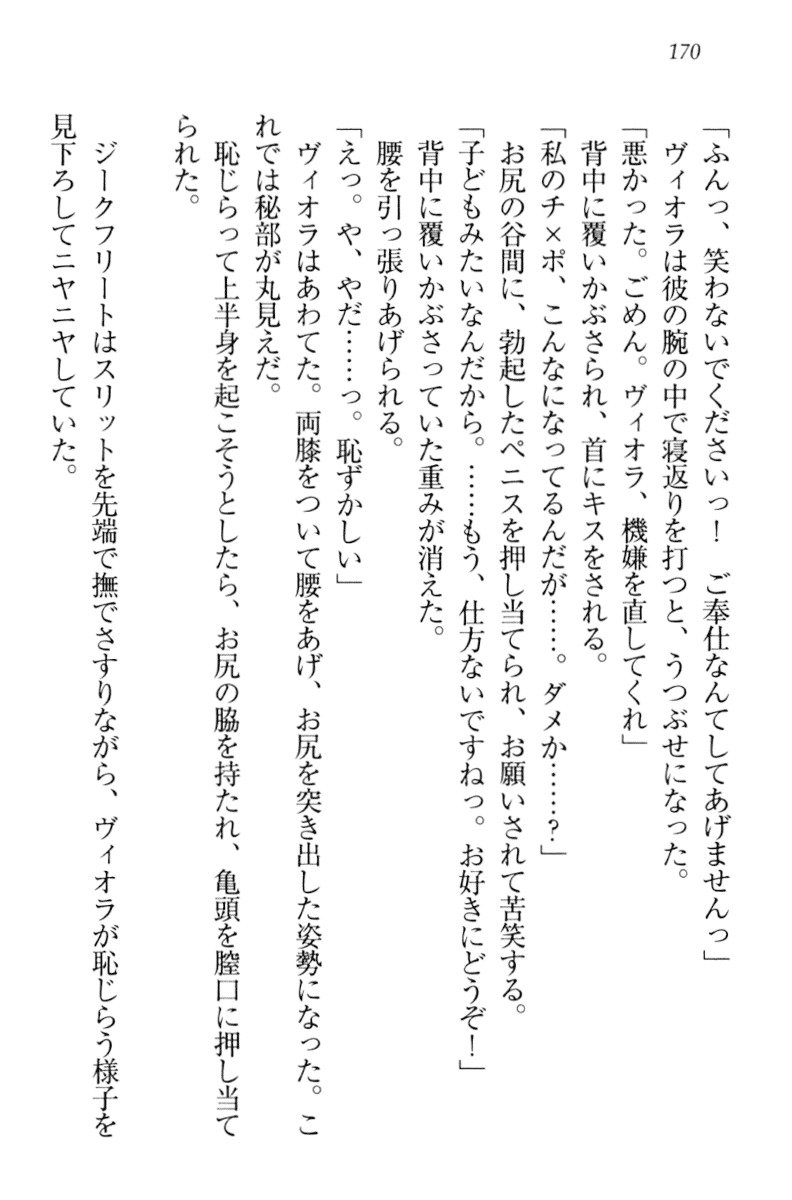 170
「ふんっ、笑わないでくださいっ！　ご奉仕なんてしてあげませんっ」
ヴィオラは彼の腕の中で寝返りを打つと、うつぶせになった。
「悪かった。ごめん。ヴィオラ、機嫌を直してくれ」
背中に覆いかぶさられ、首にキスをされる。
「私のチ×ポ、こんなになってるんだが……。ダメか……？」
お尻の谷間に、勃起したペニスを押し当てられ、お願いされて苦笑する。
「子どもみたいなんだから。……もう、仕方ないですねっ。お好きにどうぞ！」
背中に覆いかぶさっていた重みが消えた。
腰を引っ張りあげられる。
「えっ。や、やだ……っ。恥ずかしい」
ヴィオラはあわてた。両膝をついて腰をあげ、お尻を突き出した姿勢になった。こ
れでは秘部が丸見えだ。
恥じらって上半身を起こそうとしたら、お尻の脇を持たれ、亀頭を膣口に押し当て
られた。
ジークフリートはスリットを先端で撫でさすりながら、ヴィオラが恥じらう様子を
見下ろしてニヤニヤしていた。